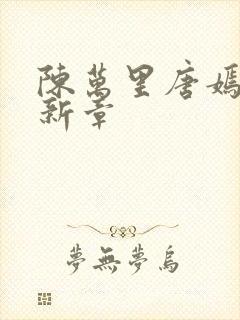 陳萬里唐嫣
新章
夢無夢烏